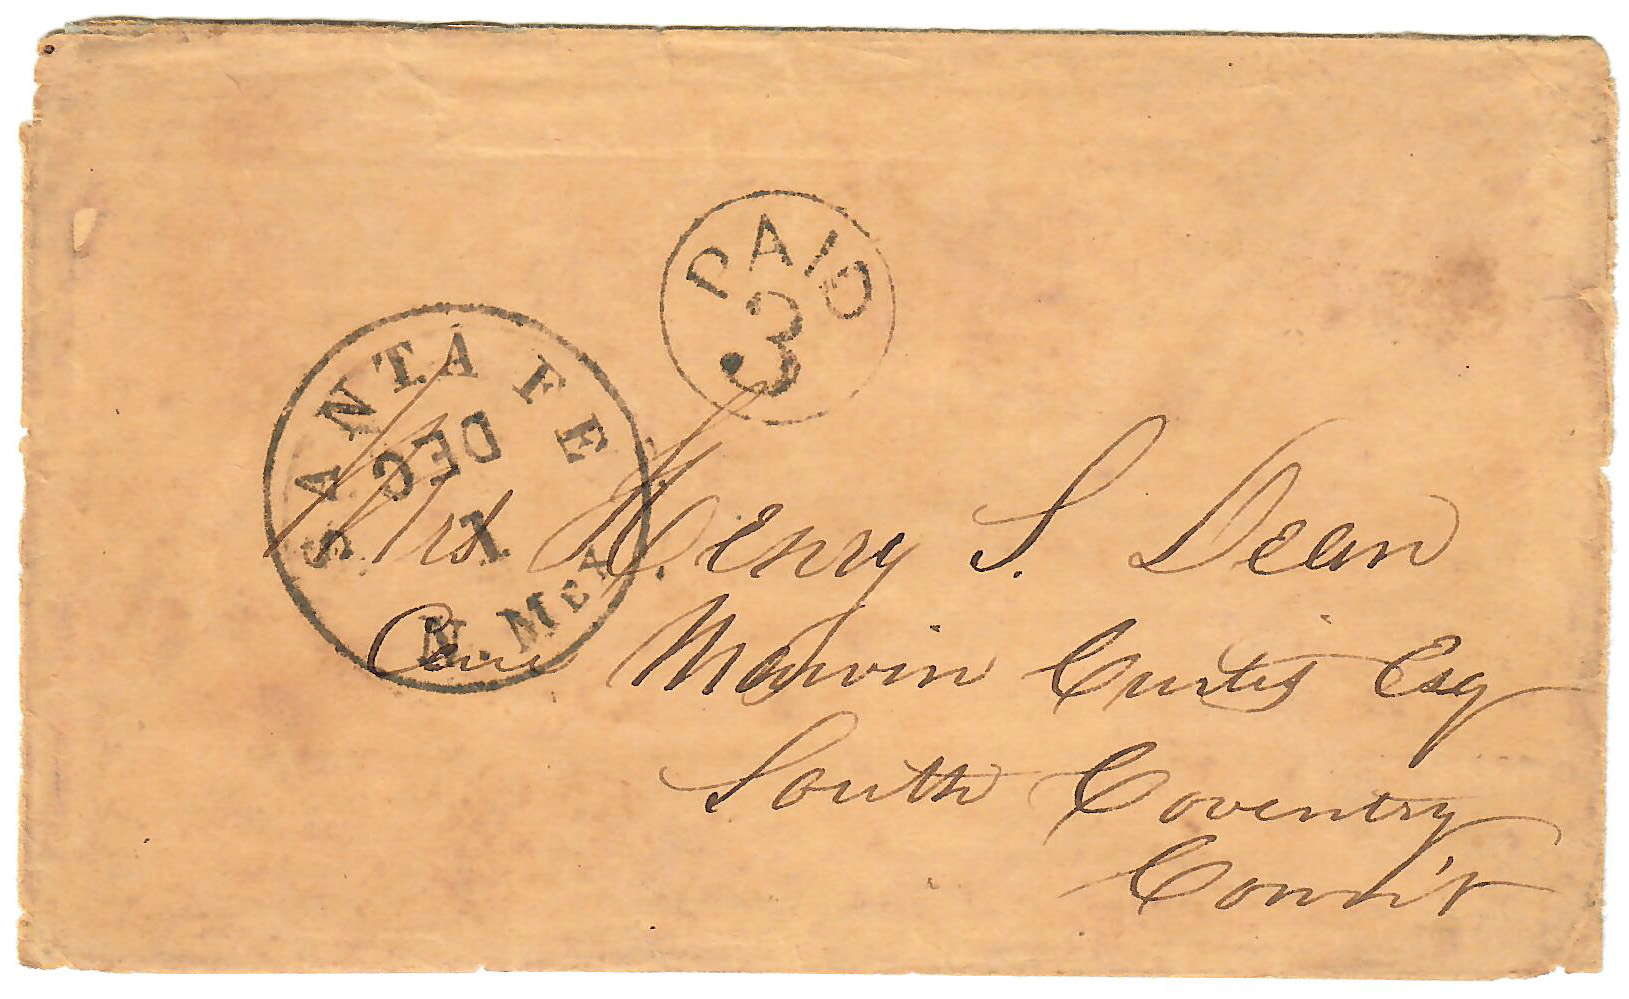 PAID
3
SANTA FE
DEC
1
N. MEX.
Mrs Henry S. Dean
Care Marvin Curtis Esq
South Coventry
Conn't